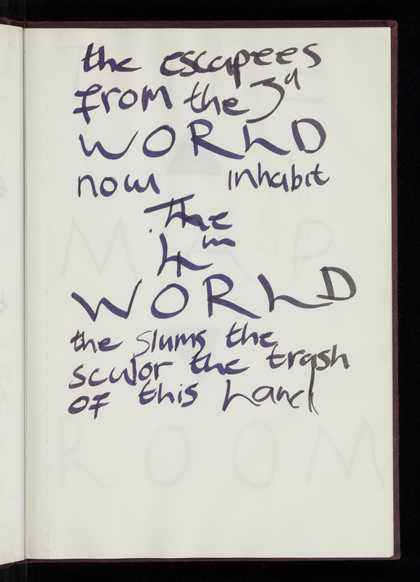 the escapees
from the 3d
WORLD
now inhabit
The
4th
WORLD
the slums the
the trash
of this Land